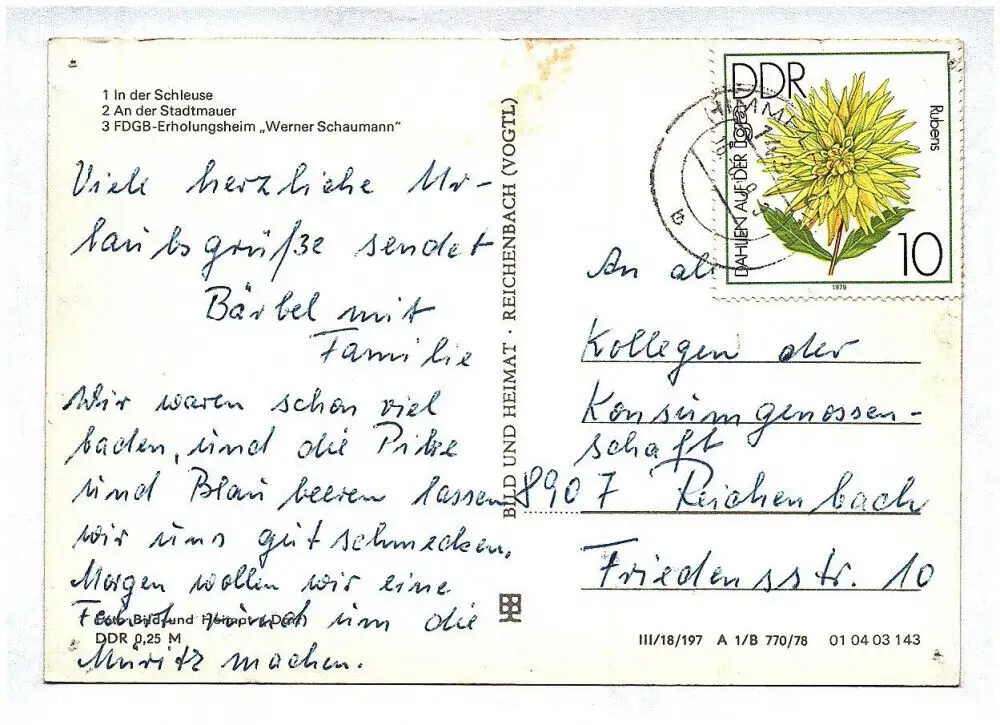 1 In der Schleuse
2 An der Stadtmauer
3 FDGB-Erholungsheim „Werner Schaumann“
Viele herzliche Ur-
laubsgrüße sendet
Bärbel mit
Familie
Wir waren schon viel
baden, und die Pilze
und Blaubeeren lassen
wir uns gut schmecken.
Morgen wollen wir eine
Fahrt rund um die
Müritz machen.
Foto Bild und Heimat
DDR 0,25 M
BILD UND HEIMAT · REICHENBACH (VOGTL)
DDR
DAHLIEN AUF DER iga
Rubens
10
1979
An al
Kollegen der
Konsumgenossen-
schaft
8907 Reichenbach
Friedensstr. 10
III/18/197 A 1/B 770/78 01 04 03 143